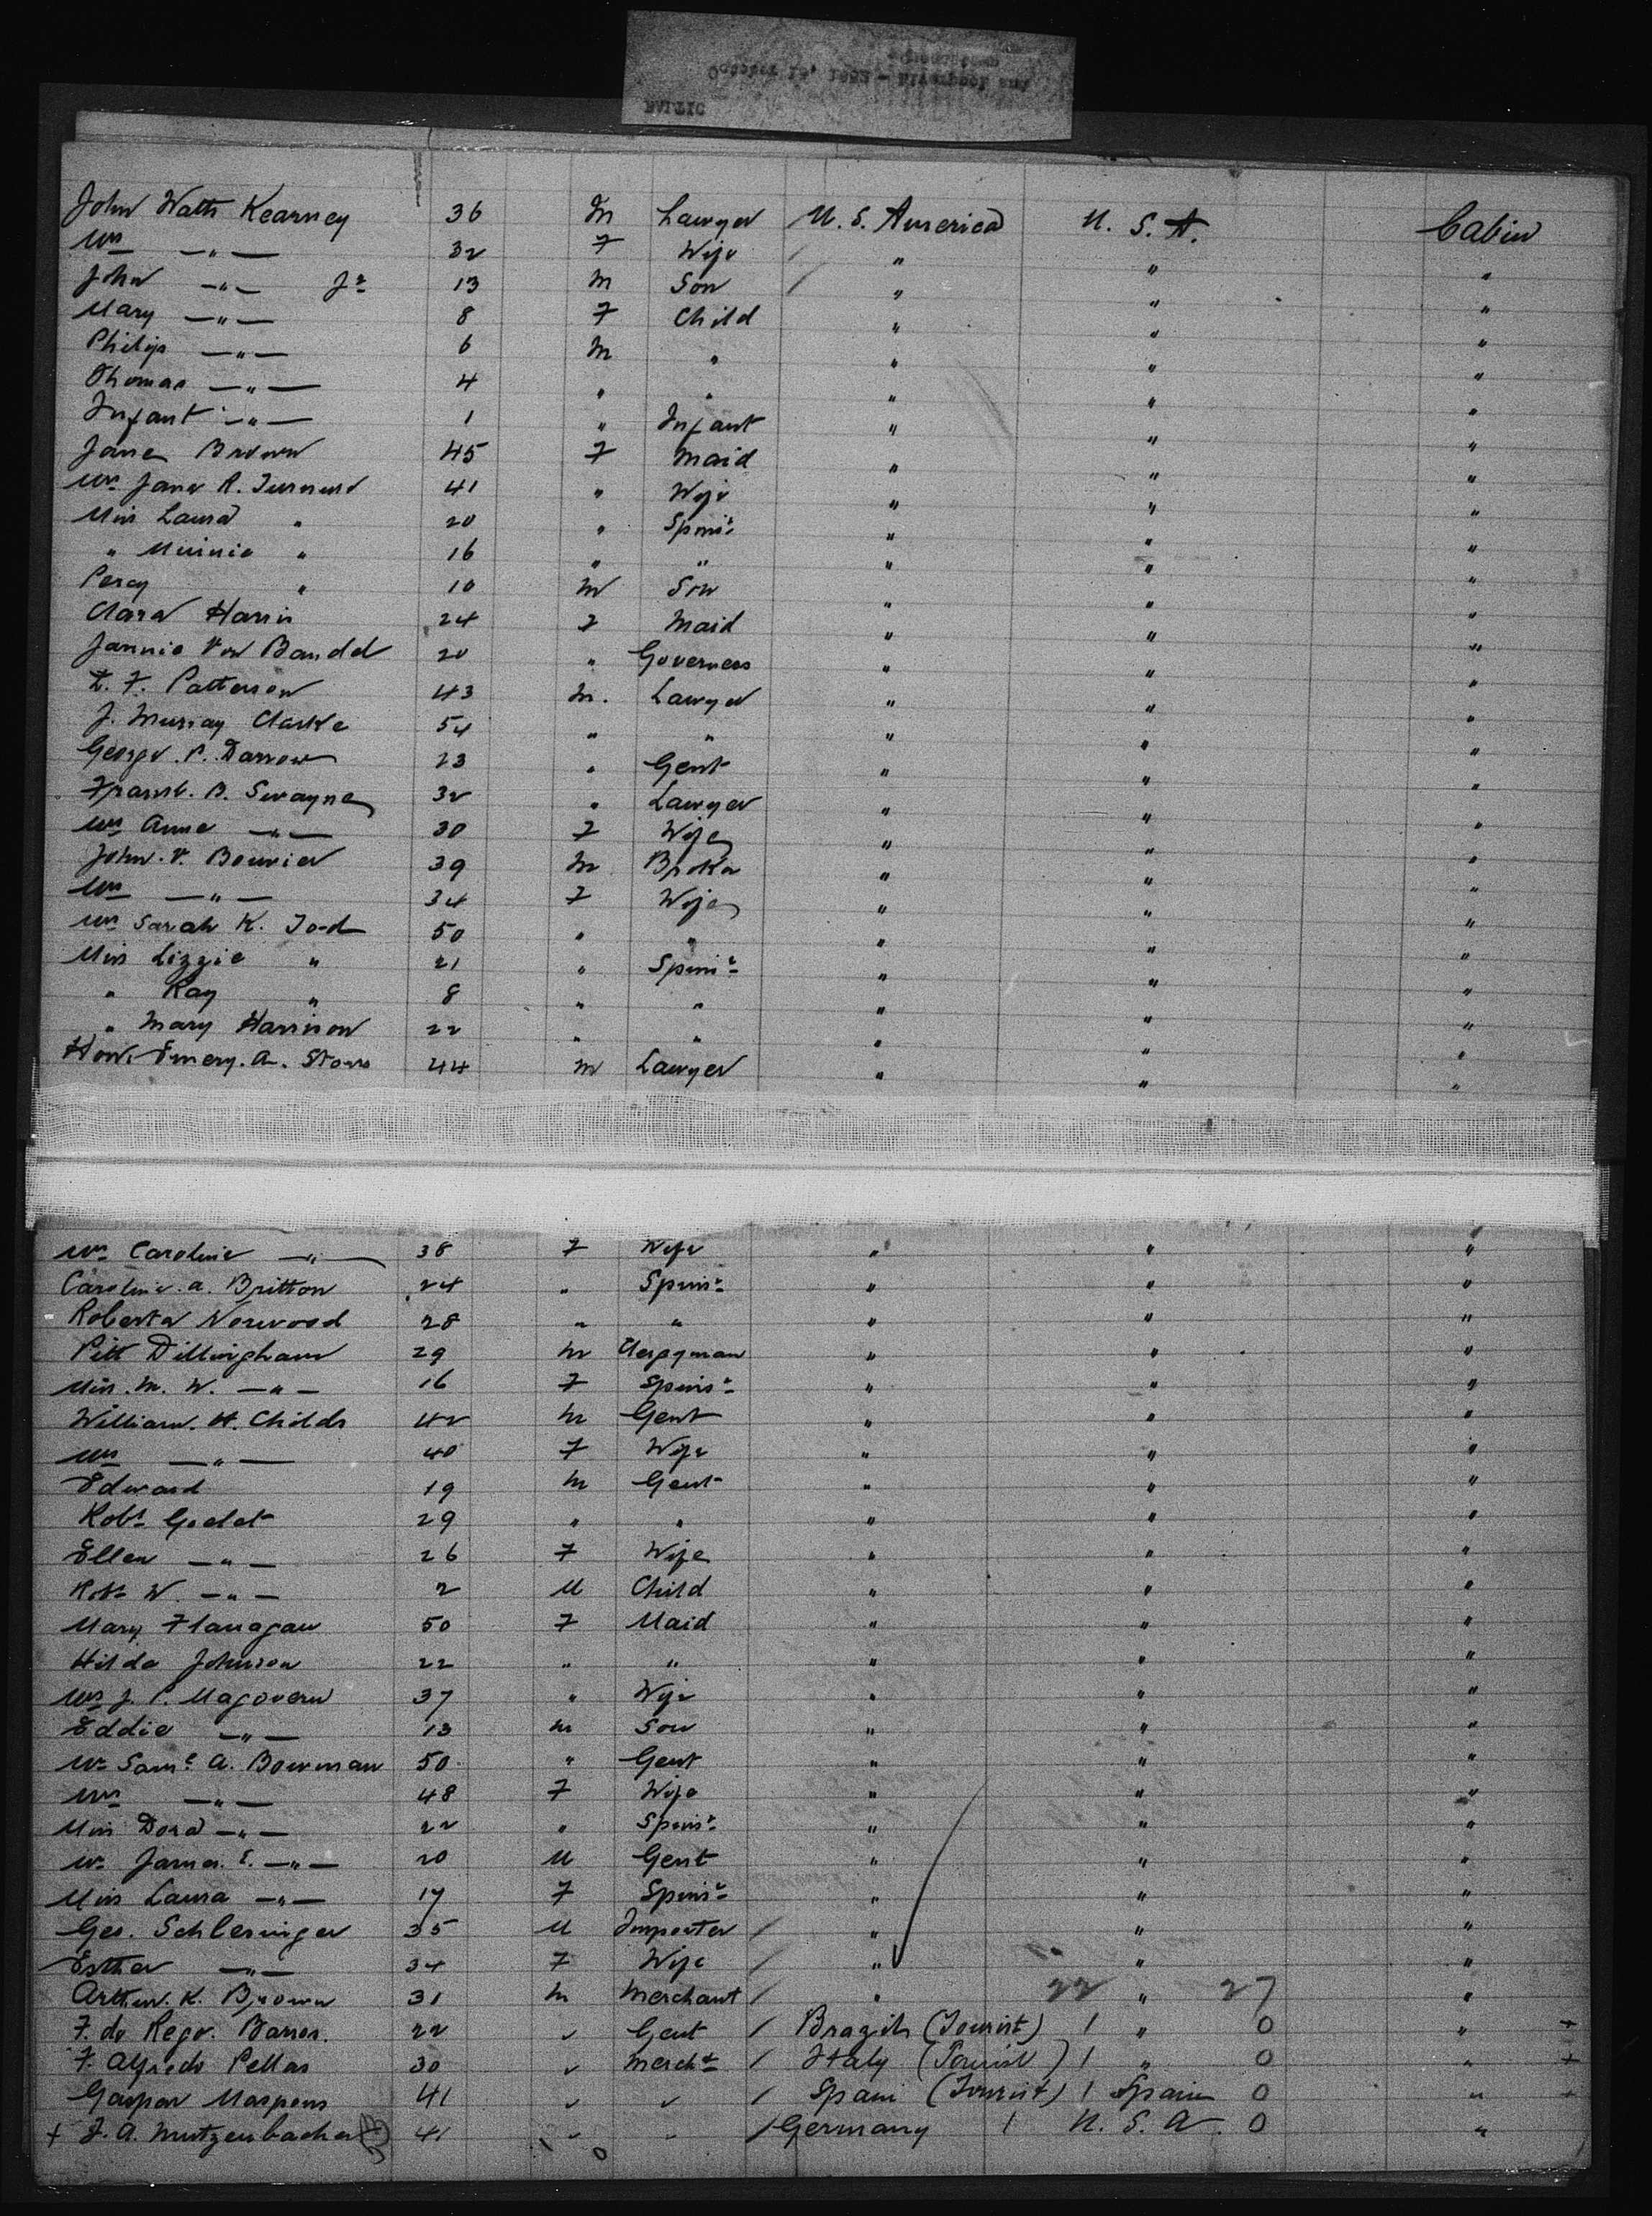 BALTIC
October 19, 1882 - Liverpool and
Queenstown
John Watts Kearney 36 M Lawyer U. S. America U. S. A. Cabin
Mrs —"— 32 F Wife " " "
John —"— Jr 13 M Son " " "
Mary —"— 8 F Child " " "
Philip —"— 6 M " " " "
Thomas —"— 4 " " " " "
Infant —"— 1 " Infant " " "
Jane Brown 45 F Maid " " "
Mrs Jane R. 41 " Wife " " "
Miss Laura " 20 " Spinsr " " "
" Minnie " 16 " " " " "
Percy " 10 M Son " " "
Clara Harris 24 F Maid " " "
Jannie Von Bandel 20 " Governess " " "
T. F. Patterson 43 M. Lawyer " " "
J. Murray Clarke 54 " " " " "
George P. Darrow 23 " Gent " " "
Frank. B. Swayne 32 " Lawyer " " "
Mrs Anne —"— 30 F Wife " " "
John. V. Bouvier 39 M Broker " " "
Mrs —"— 34 F Wife " " "
Mrs Sarah K. Tod 50 " " " " "
Miss Lizzie " 21 " Spinsr " " "
" Ray " 8 " " " " "
" Mary Harrison 22 " " " " "
Hon. Emery. A. Storrs 44 M Lawyer " " "
Mrs Caroline —"— 38 F Wife " " "
Caroline. A. Britton 24 " Spinsr " " "
Roberta Norwood 28 " " " " "
Pitt Dillingham 29 M Clergyman " " "
Miss. M. W. —"— 16 F Spinsr " " "
William. H. Childs 42 M Gent " " "
Mrs —"— 40 F Wife " " "
Edward 19 M Gent " " "
Robt 29 " " " " "
Ellen —"— 26 F Wife " " "
Robt W. —"— 2 M Child " " "
Mary Flanagan 50 F Maid " " "
Hilda Johnson 22 " " " " "
Mrs J. P. Magovern 37 " Wife " " "
Eddie —"— 13 M Son " " "
Mr Saml A. Bowman 50 " Gent " " "
Mrs —"— 48 F Wife " " "
Miss Dora —"— 22 " Spinsr " " "
Mr James. E. —"— 20 M Gent " " "
Miss Laura —"— 17 F Spinsr " " "
Geo. Schlesinger 35 M Importer / " " "
Esther —"— 34 F Wife / " " "
Arthur. K. Brown 31 M Merchant / " 22 " 27 "
F. do Rego. Barros. 22 " Gent / Brazil (Tourist) 1 " 0 " +
F. Alfredo Pellas 30 " Mercht / Italy (Tourist) 1 " 0 " +
Gaspar 41 " " / Spain (Tourist) 1 Spain 0 " +
+ F. A. Mutzenbacher 41 " " / Germany 1 U. S. A. 0 "
0